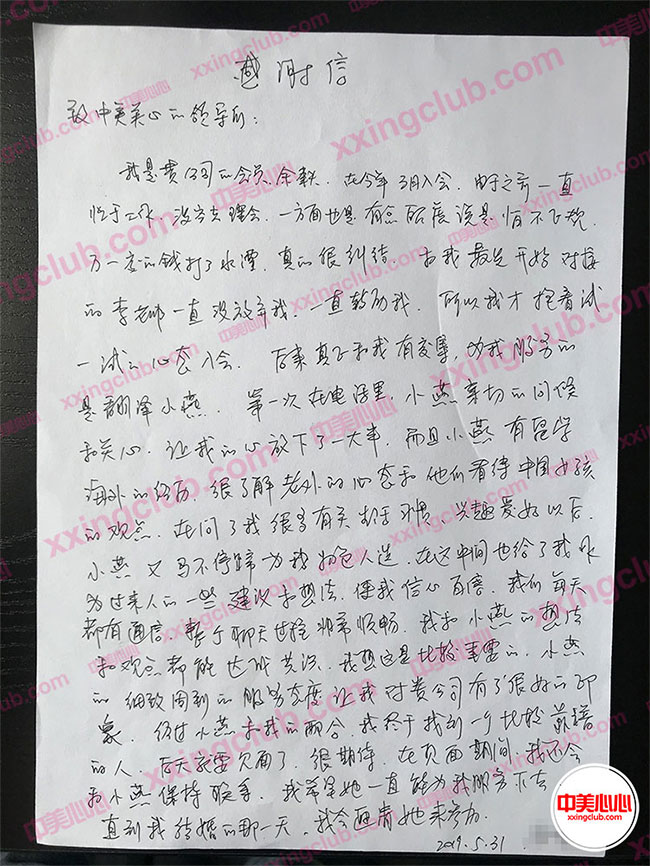 感谢信
致中美心心的领导们：
我是贵公司的会员余 在今年3月入会. 由于之前一直
忙于工作. 没有去理会. 一方面也是有点 说是怕不
万一交的钱打了水漂. 真的很纠结. 和我最先开始对接
的李老师一直没放弃我. 一直鼓励我. 所以我才抱着试
一试的心态入会. 后来真正和我有交集, 为我服务的
是翻译小燕. 第一次在电话里, 小燕亲切的问候
和关心. 让我的心放下了一大半. 而且小燕有留学
海外的经历. 很了解老外的心态和他们看待中国女孩
的观点. 在问了我很多有关生活习惯、兴趣爱好以后.
小燕又马不停蹄为我物色人选. 在这中间也给了我
为过来人的一些建议和想法. 使我信心百倍. 我们每天
都有通信. 整个聊天过程非常顺畅. 我和小燕的想法
和观点都能达成共识. 我想这是比较重要的. 小燕
的细致周到的服务态度让我对贵公司有了很好的印
象. 经过小燕和我的配合. 我终于找到一个比较靠谱
的人. 后天就要 面了. 很期待. 在 面期间. 我还会
和小燕保持联系. 我希望她一直能为我服务下去
直到我结婚的那一天. 我会邀请她来参加.
2019.5.31
中美心心
xxingclub.com